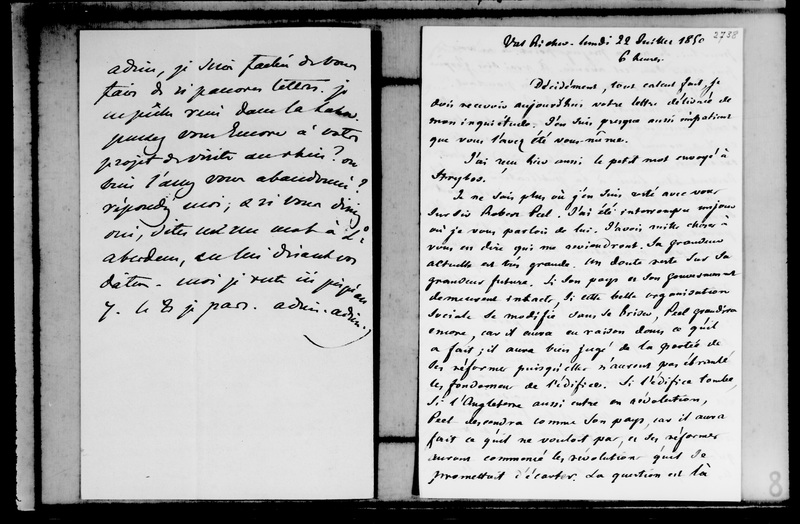 adieu, je suis fachée de vous
faire de si pauvres lettres. je
ne puise rien dans la
pensez vous encore à votre
projet de visite au rhin? ou
bien l'avez vous abandonné?
répondez moi, & si vous dites
oui, dites un mot à Ld
aberdeen, en lui disant vos
dates. moi je reste ici jusqu'au
7. le 8 je pars. adieu. adieu.
2738
Val Richer. lundi 22 Juillet 1850
6 heures.
Décidément, tout calcul fait, je
dois recevoir aujourd'hui votre lettre délivrée de
mon inquiétude. J'en suis presque aussi impatient
que vous l'avez été vous-même.
J'ai reçu hier aussi le petit mot envoyé à
Je ne sais plus où j'en suis resté avec vous
sur Sir Robert Peel. J'ai été interrompu un jour
où je vous parlois de lui. J'avois mille choses à
vous en dire qui me reviendront. Sa grandeur
actuelle est très grande. Un doute reste sur sa
grandeur future. Si son pays et son gouvernement
demeurent intacts, si cette belle organisation
sociale se modifie sans se briser, Peel grandira
encore, car il aura eu raison dans ce qu'il
a fait; il aura bien jugé de la portée de
ses réformes puisqu'elles n'auront pas ébranlé
les fondemens de l'édifice. Si l'édifice tombe,
si l'Angleterre aussi entre en révolution,
Peel descendra comme son pays, car il aura
fait ce qu'il ne vouloit pas, et ses réformes
auront commencé les révolutions qu'il se
promettoit d'écarter. La question est là
8